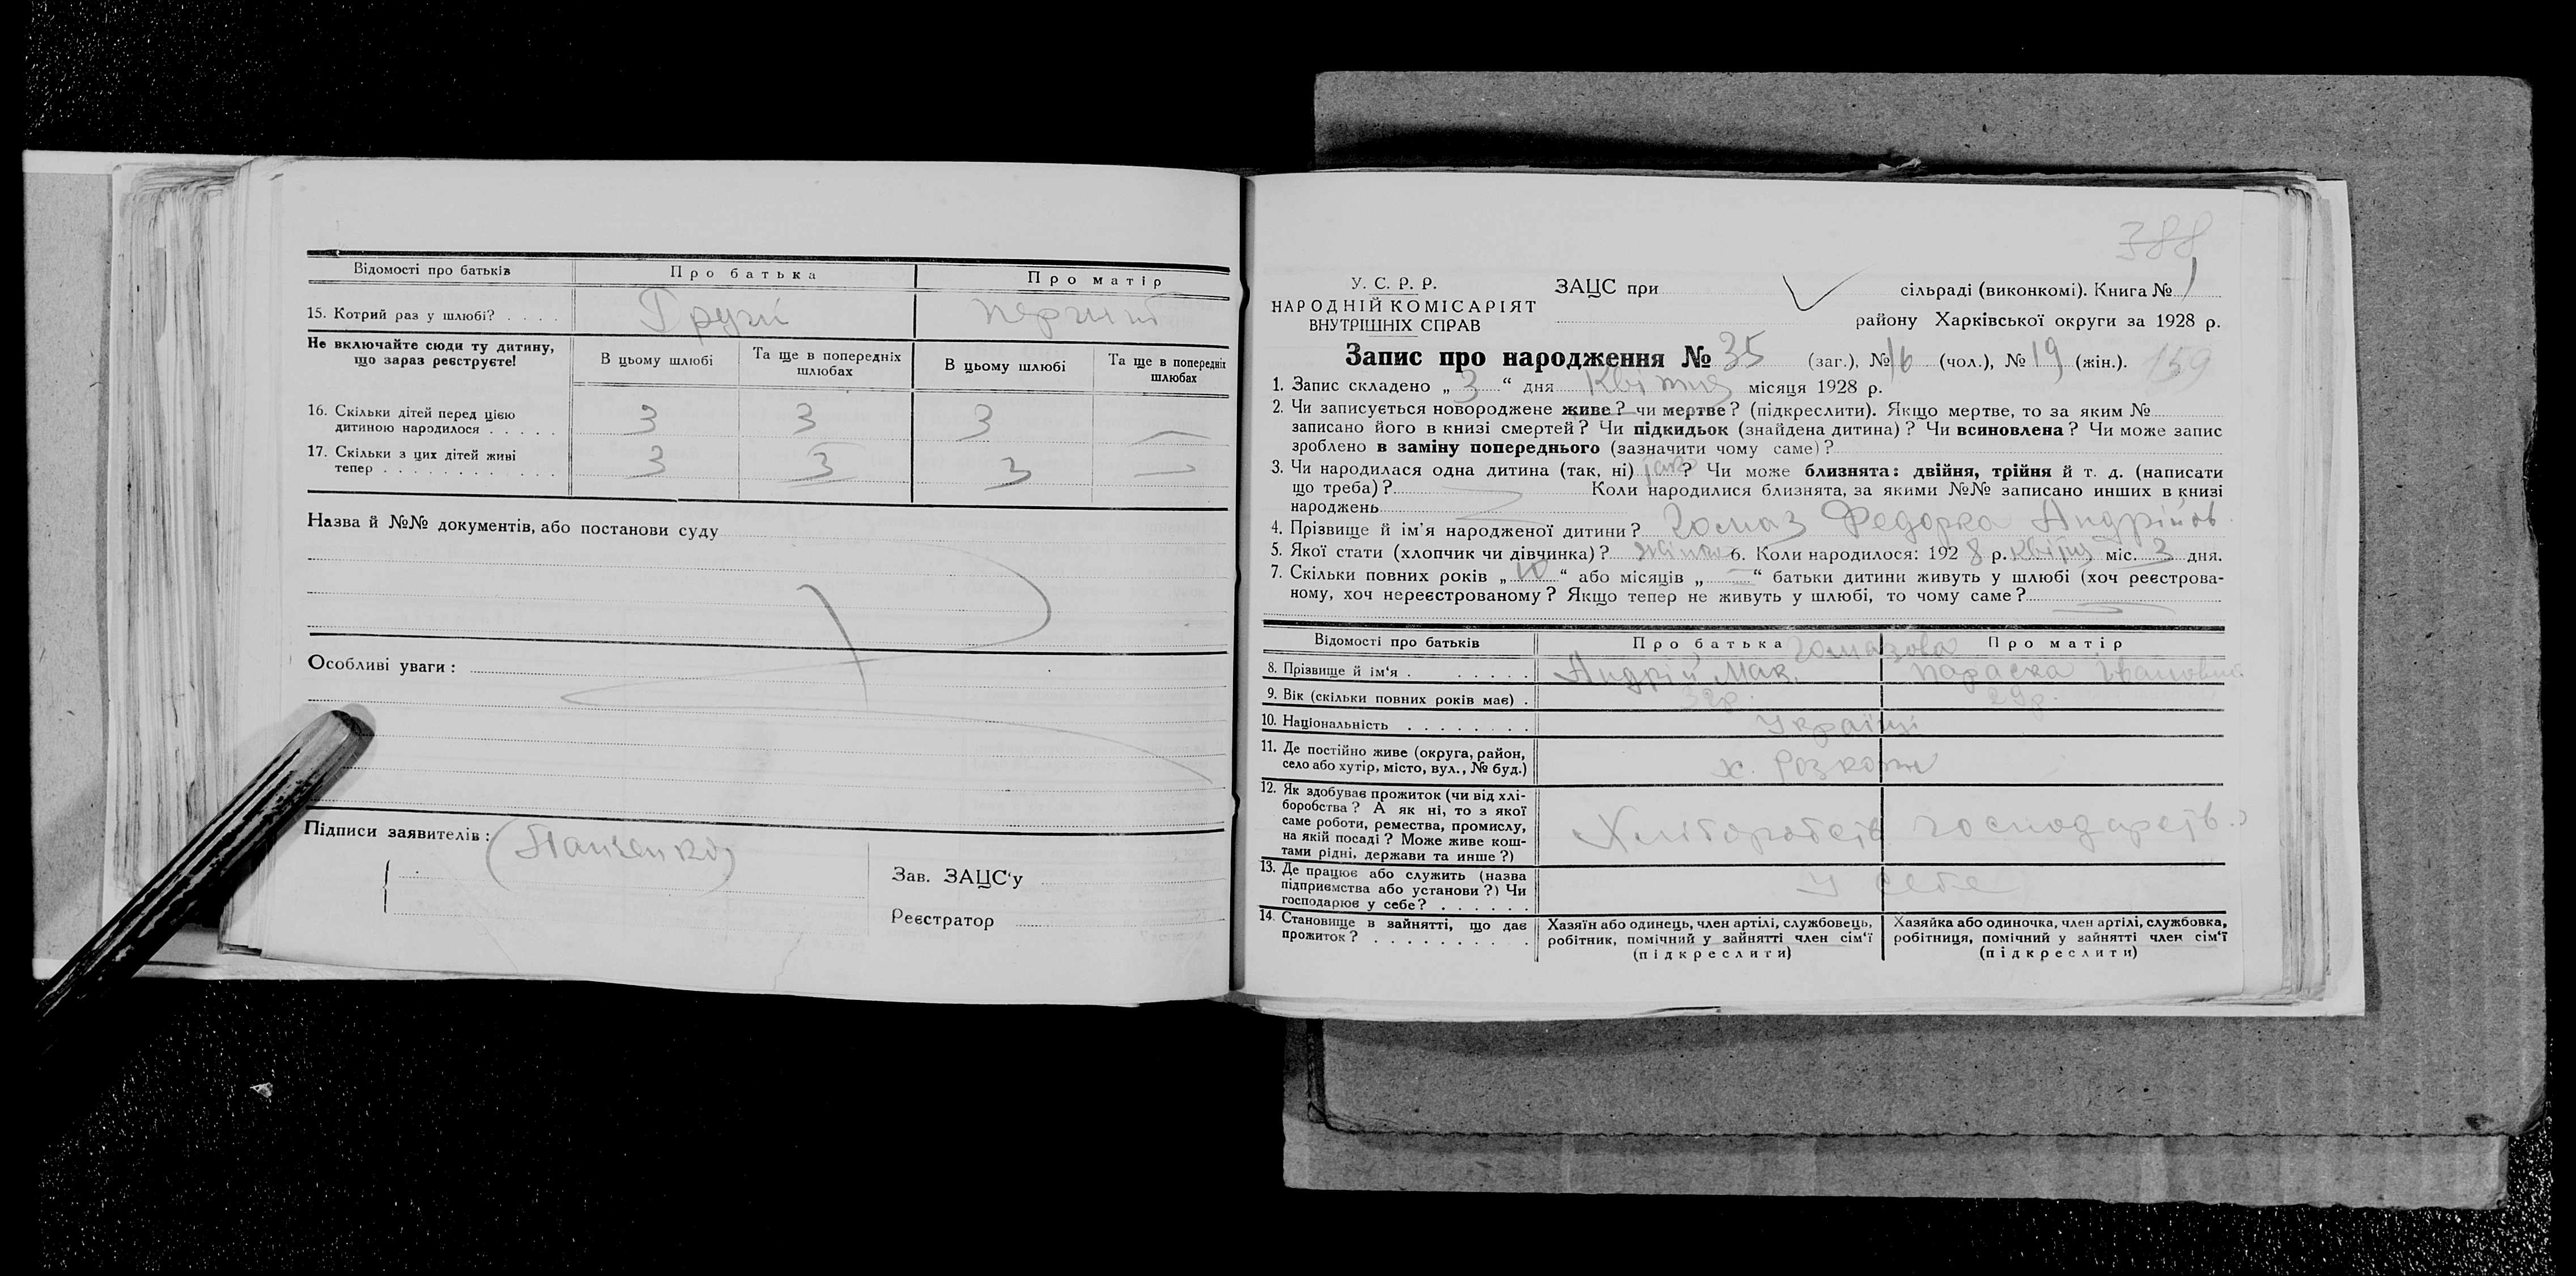 Відомості про батьків Про батька Про матір
15. Котрий раз у шлюбі? . . . . Другий перший
Не включайте сюди ту дитину,
що зараз реєструєте!
В цьому шлюбі Та ще в попередніх шлюбах В цьому шлюбі Та ще в попередніх шлюбах
16. Скільки дітей перед цією
дитиною народилося . . . . . 3 3 3 —
17. Скільки з цих дітей живі
тепер . . . . . . . . . . . . 3 3 3 —
Назва й №№ документів, або постанови суду
Особливі уваги:
Підписи заявителів: (Панченко)
Зав. ЗАЦС'у
Реєстратор
388
У. С. Р. Р.
НАРОДНІЙ КОМІСАРІЯТ
ВНУТРІШНІХ СПРАВ
ЗАЦС при сільраді (виконкомі). Книга № 1
району Харківської округи за 1928 р.
Запис про народження № 35 (заг.), № 16 (чол.), № 19 (жін.). 159
1. Запис складено „ 3 “ дня Квітня місяця 1928 р.
2. Чи записується новороджене живе? чи мертве? (підкреслити). Якщо мертве, то за яким №
записано його в книзі смертей? Чи підкидьок (знайдена дитина)? Чи всиновлена? Чи може запис
зроблено в заміну попереднього (зазначити чому саме)?
3. Чи народилася одна дитина (так, ні) ? Чи може близнята: двійня, трійня й т. д. (написати
що треба)? Коли народилися близнята, за якими №№ записано инших в книзі
народжень
4. Прізвище й ім'я народженої дитини? Гомаз Федорка Андріїов
5. Якої стати (хлопчик чи дівчинка)? жінка 6. Коли народилося: 1928 р. Квітня міс. 3 дня.
7. Скільки повних років „ 10 “ або місяців „ — “ батьки дитини живуть у шлюбі (хоч реєстрова-
ному, хоч нереєстрованому? Якщо тепер не живуть у шлюбі, то чому саме?
Відомості про батьків Про батька Про матір
Гомазова
8. Прізвище й ім'я . . . . . . . Андрій Мак. Параска Івановна
9. Вік (скільки повних років має) . 32р. 29р.
10. Національність . . . . . . . . Україці
11. Де постійно живе (округа, район,
село або хутір, місто, вул., № буд.) х. Розкоши
12. Як здобуває прожиток (чи від хлі-
боробства? А як ні, то з якої
саме роботи, ремества, промислу,
на якій посаді? Може живе кош-
тами рідні, держави та инше?) Хліборобств господарств.
13. Де працює або служить (назва
підприємства або установи?) Чи
господарює у себе? . . . . . . у себе
14. Становище в зайнятті, що дає
прожиток? . . . . . . . . . .
Хазяїн або одинець, член артілі, службовець,
робітник, помічний у зайнятті член сім'ї
(підкреслити)
Хазяйка або одиночка, член артілі, службовка,
робітниця, помічний у зайнятті член сім'ї
(підкреслити)